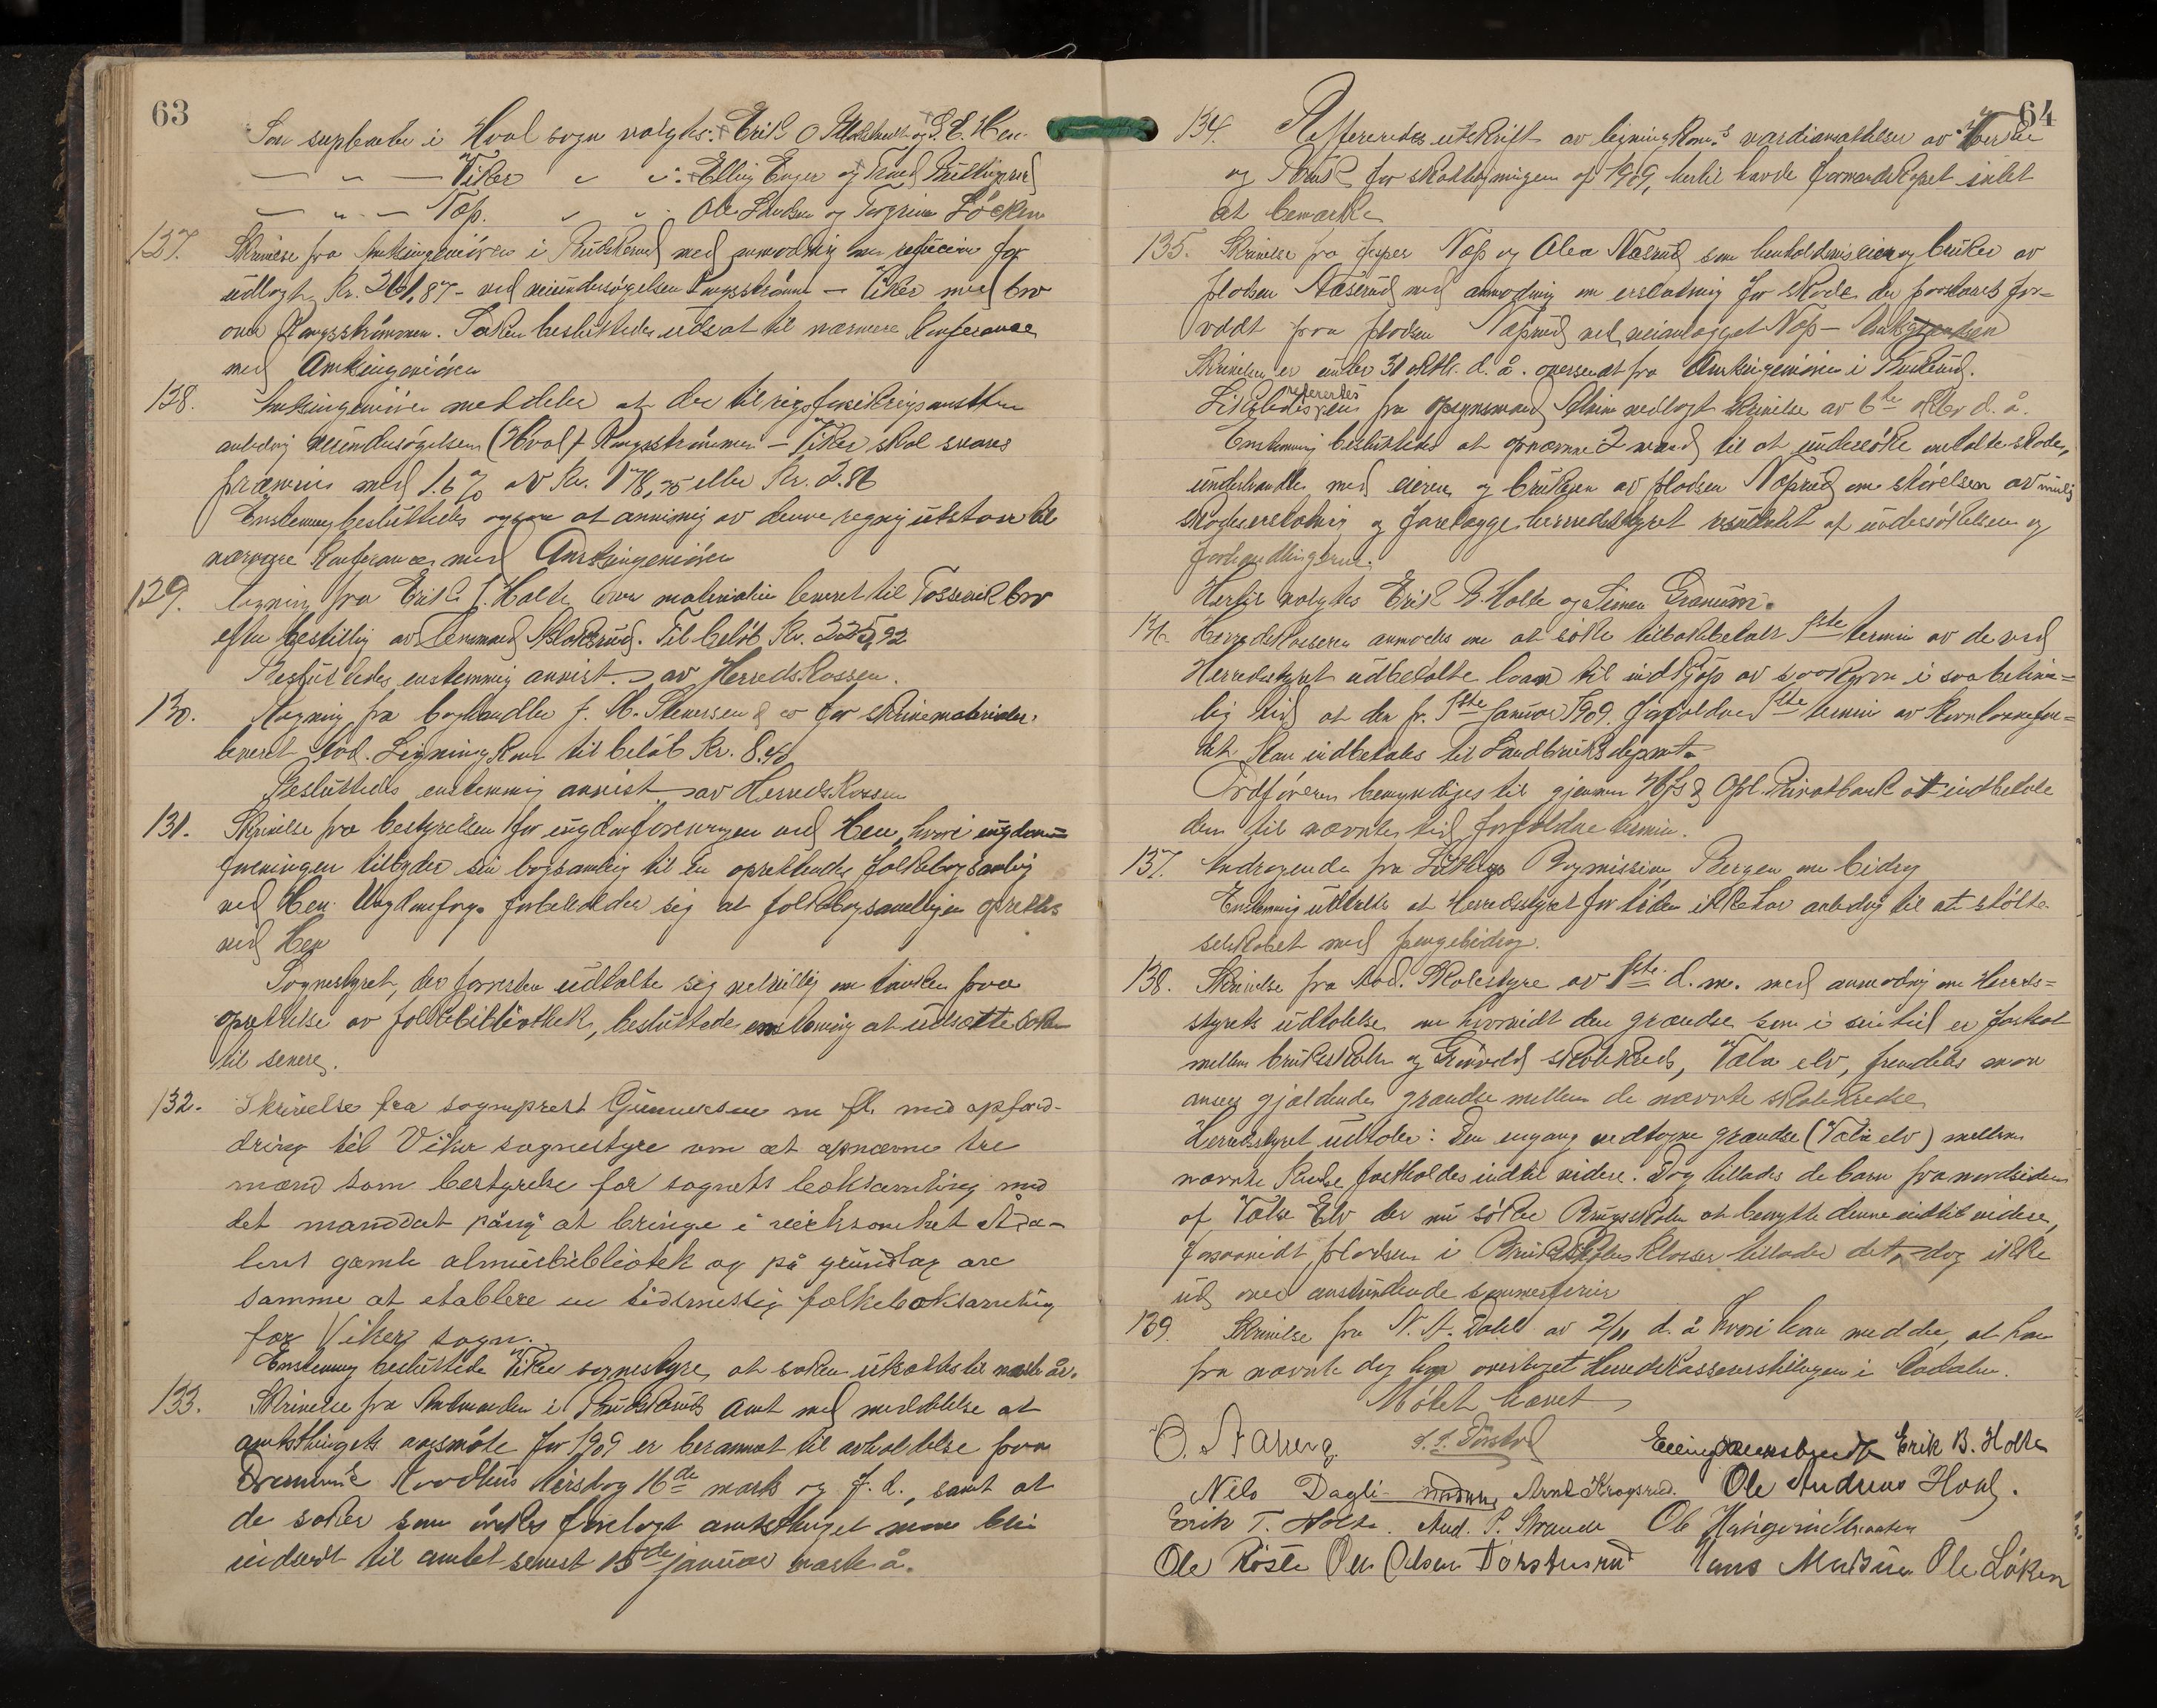 63
Som suplenter i Hval sogn valgtes: Erik O og S. E. Hen.
— " — Viker " " : Elling Enger og
— " — Næs. " " Ole Knudsen og Torgrim Löcken
127. Skrivelse fra Amtsingeniören i Buskerud med anmodning om refusion for
udlagt Kr. 261,87 – ved veiundersögelsen Kongsströmmen – Viker med bro
over Kongsströmmen. Saken besluttedes udsat til nærmere konferance
med Amtsingeniören
128. Amtsingeniören meddeler at der til rigsforsikringsanstalten
anledning veiundersögelsen (Hval) Kongsströmmen – Viker skal svares
præmie med 1.6 % av Kr. 178,75 eller Kr. 2.86
Enstemmig besluttedes ogsaa at anvisning av denne regning utstaar til
nærmere konferance med Amtsingeniören
129. Regning fra Erik T. Holte over materialier leveret til Tossevik bro
efter bestilling av Lensmand . Til belöb Kr. 225,92
Besluttedes enstemmig anvist av Herredskassen.
130. Regning fra boghandler f. M. Stenersen & co for skrivematerialer
leveret Aad. Ligningskom til belöb Kr. 8.40
Besluttedes enstemmig anvist av Herredskassen
131. Skrivelse fra bestyrelsen for ungdomsforeningen ved Hen, hvori ungdoms=
foreningen tilbyder sin bogsamling til en oprettende folkebogsamling
ved Hen. Ungdomsforg. forbeholder sig at folkebogsamlingen oprettes
ved Hen
Sognestyret, der forresten udtalte sig velvillig om tanken paa
oprettelse av folkebibliothek, besluttede enstemmig at udsætte saken
til senere.
132. Skrivelse fra sogneprest Gunnersen m fl. med opford-
dring til Viker sognestyre om at opnævne tre
mænd som bestyrelse for sognets boksamling med
det manddat påny at bringe i virksomhet Åda-
lens gamle almuebibliotek og på grundlag av
samme at etablere en tidsmessig folkeboksamling
for Vikers sogn.
Enstemmig besluttede Viker sognestyre, at saken utsættes til næste år.
133. Skrivelse fra Amtmanden i Buskeruds Amt med meddelelse at
amtsthingets aarsmöte for 1909 er berammet til avholdelse paa
Drammens Raadhus tirsdag 16de marts og f. d., samt at
de saker som önskes forelagt amtsthinget maa bli
indsendt til amtet senest 15de januar næste å.
64
134. Refereredes utskrift av ligningskom.s værdiansættelser av Verker
og Bruk for skatteligningen af 1909, hertil havde formandskapet intet
at bemærke
135. Skrivelse fra Jesper Næs og Olea Næsrud som henholdsvis eier og bruker av
pladsen Næsrud med anmodning om erstatning for skade der paastaaes for-
voldt paa pladsen Næsrud ved veianlægget Næs –
Skrivelsen er under 31 oktbr. d. å. oversendt fra Amtsingeniören i Buskerud.
Ligeledes refereredes en fra opsynsmand vedlagt skrivelse av 6te oktbr d. å.
Enstemmig besluttedes at opnævne 2 mænd til at undersöke omtalte skade,
underhandle med eieren og brukeren av pladsen Næsrud om störelsen av mulig
skadeserstatning og forelægge herredsstyret resultatet af undersökelsen og
forhandlingerne.
Hertil valgtes Erik B. Holte og Simen Granum.
136. Herredskassereren anmodes om at söke tilbakebetalt 1ste termin av de ved
Herredsstyret udbetalte laan til indkjöp av saakorn i saa betime=
lig tid at den pr. 1ste Januar 1909 forfaldne 1ste termin av kornlaanefon=
det kan indbetales til Landbruksdepmt.
Ordföreren bemyndiges til gjennem Hfs & Opl. Privatbank at indbetale
den til nævnte tid forfaldne termin.
137. Andragende fra Bymission, Bergen om bidrag
Enstemmig udtaltes at Herredsstyret for tiden ikke har anledning til at stötte
selskabet med pengebidrag.
138. Skrivelse fra Aad. Skolestyre av 1ste d. m. med anmodning om Herreds=
styrets udtalelse om hvorvidt den grændse som i sin tid er fastsat
mellem bruksskolen og skolekreds, Vala elv, fremdeles maa
ansees gjældende grændse mellem de nævnte skolekredse
Herredsstyret udtaler: Den engang vedtagne grændse (Vala elv) mellem
nævnte kredse fastholdes indtil videre. Dog tillades de barn fra nordsiden
af Vala Elv der nu söker Bruksskolen at benytte denne indtil videre,
forsaavidt pladsen i Bruksskolens klasser tillader det, dog ikke
ud over anstundende sommerferie
139. Skrivelse fra N. A. Dahl av 2/11 d. å hvori han meddeler, at han
fra nævnte dag har overtaget Herredskassererstillingen i Aadalen.
Mötet hævet
Erik B. Holte
Nils Dagli Arne Kragsrud. Ole Andreas Hval.
Erik T. Holte. And. P. Strande Ole
Ole Röste Ole Olsen Hans Madsen Ole Löken